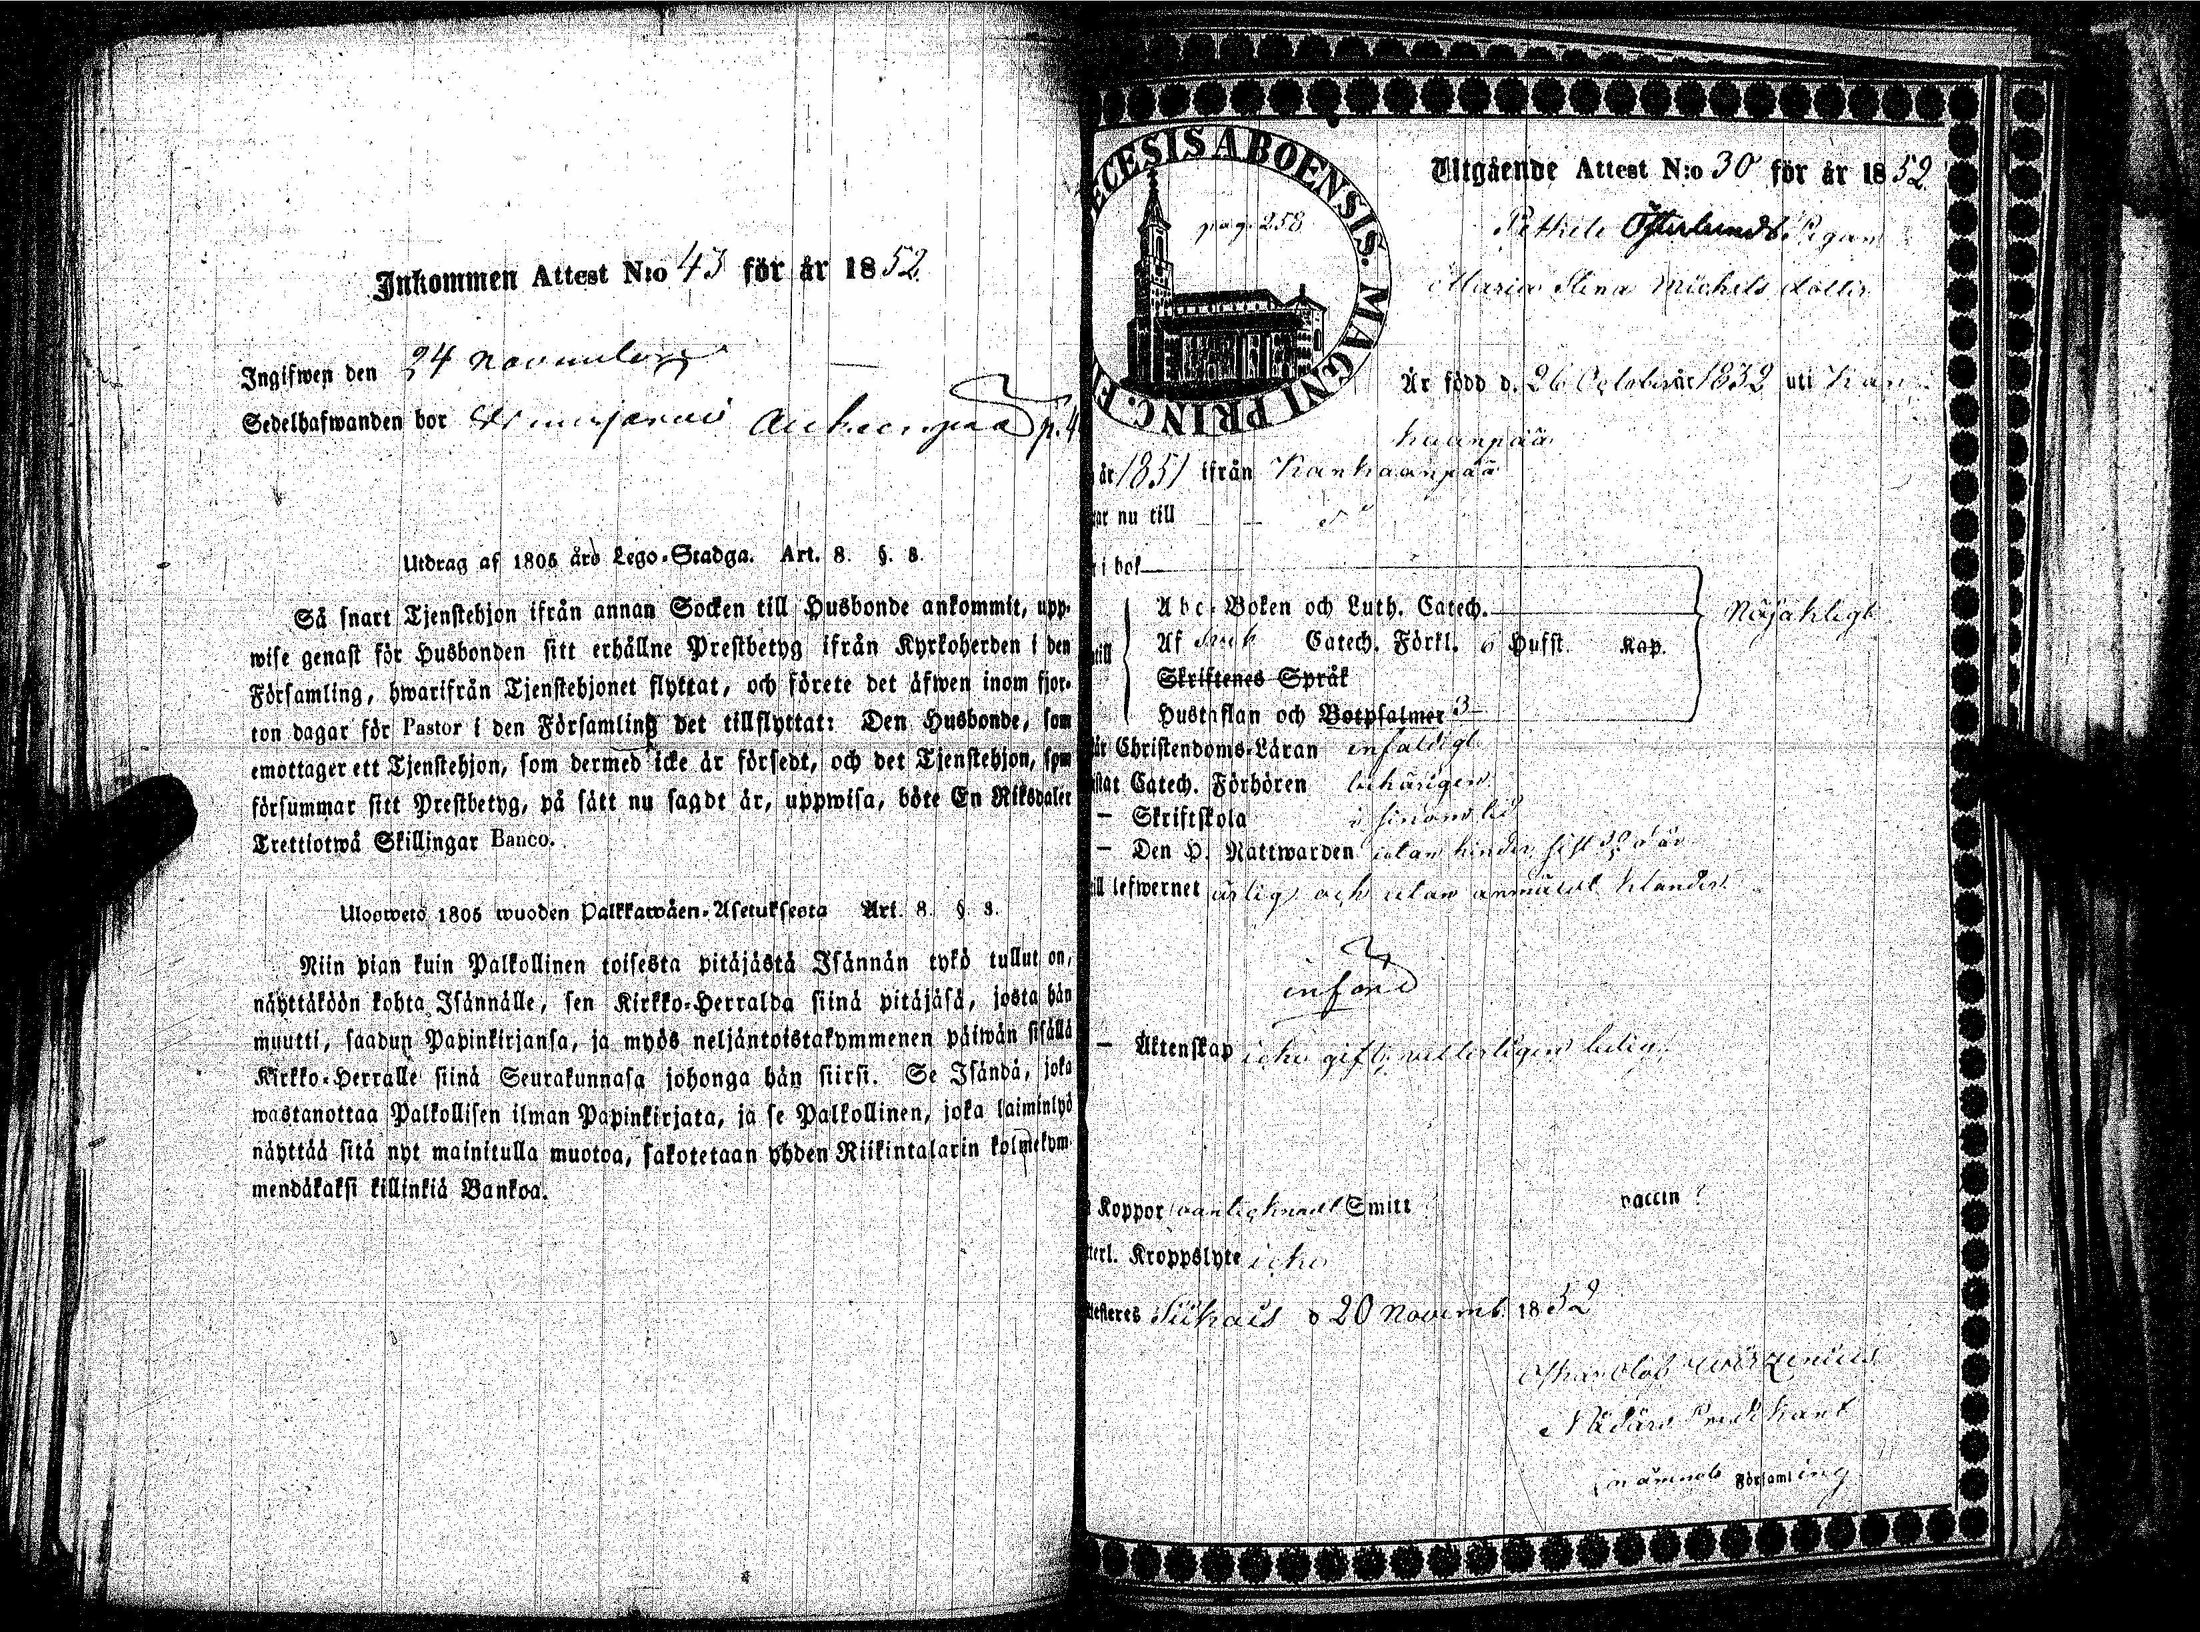 Inkommen Attest N:o 43 för år 1852.
Ingifwen den 24 November
Sedelhafwanden bor
Utdrag af 1805 års Lego-Stadga. Art. 8. §. 8.
Så snart Tjenstehjon ifrån annan Socken till Husbonde ankommit, upp-
wise genast för Husbonden sitt erhållne Prestbetyg ifrån Kyrkoherden i den
Församling, hwarifrån Tjenstehjonet flyttat, och förete det äfwen inom fjor-
ton dagar för Pastor i den Församling det tillflyttat: Den Husbonde, som
emottager ett Tjenstehjon, som dermed icke är försedt, och det Tjenstehjon, som
försummar sitt Prestbetyg, på sätt nu sagdt är, uppwisa, böte En Riksdaler
Trettiotwå Skillingar Banco.
Uloswets 1805 wuoden Palkkawäen-Asetuksesta Art. 8. §. 8.
Niin pian kuin Palkollinen toisesta pitäjästä Isännän tykö tullut on,
näyttäköön kohta Isännälle, sen Kirkko-Herralda siinä pitäjäsä, josta hän
muutti, saadun Papinkirjansa, ja myös neljäntoistakymmenen päiwän sisällä
Kirkko-Herralle siinä Seurakunnasa johonga hän siirsi. Se Isändä, joka
wastanottaa Palkollisen ilman Papinkirjata, ja se Palkollinen, joka laiminlyö
näyttää sitä nyt mainitulla muotoa, sakotetaan yhden Riikintalarin kolmekym-
mendäkaksi killinkiä Bankoa.
ECESIS ABOENSIS. MAGNI PRINC. F
pag. 258
Utgående Attest N:o 30 för år 1852
Österlunds Pigan
Maria Stina Michels dotter
Är född d. 26 October år 1832 uti Kan-
kaanpää
år 1851 ifrån Kankaanpää
ar nu till
i bok
Abc-Boken och Luth. Catech. Nöjaktigt
Af Catech. Förkl. 6 Hufst. Kap.
Skriftenes Språk
Hustaflan och Botpsalmer 3
är Christendoms-Läran enfaldigt
stat Catech. Förhören behörigen
— Skriftskola i sinom tid
— Den H. Nattwarden utan hinder sist
ill lefwernet ärlig och utan anmäldt klander.
införd
— Äktenskap icke gift, ledig
Koppor Smitt vaccin
terl. Kroppslyte icke
ttesteres Siikais d 20 Novemb. 1852
Oskar Olof
Predikant
nämnde Församling